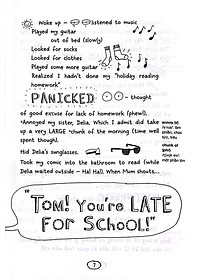 Woke up - listened to music
Played my guitar
out of bed (slowly)
Looked for socks
Looked for clothes
Played some more guitar
Realized I hadn't done my "holiday reading
homework"
PANICKED - thought
of good excuse for lack of homework (phew!).
Annoyed my sister, Delia. Which I admit did take
up a very LARGE *chunk of the morning (time well
spent though).
Hid Delia's sunglasses.
Took my comic into the bathroom to read (while
Delia waited outside - Ha! Ha!). When Mum shouts...
"TOM! You're LATE
FOR SCHOOL!"
7